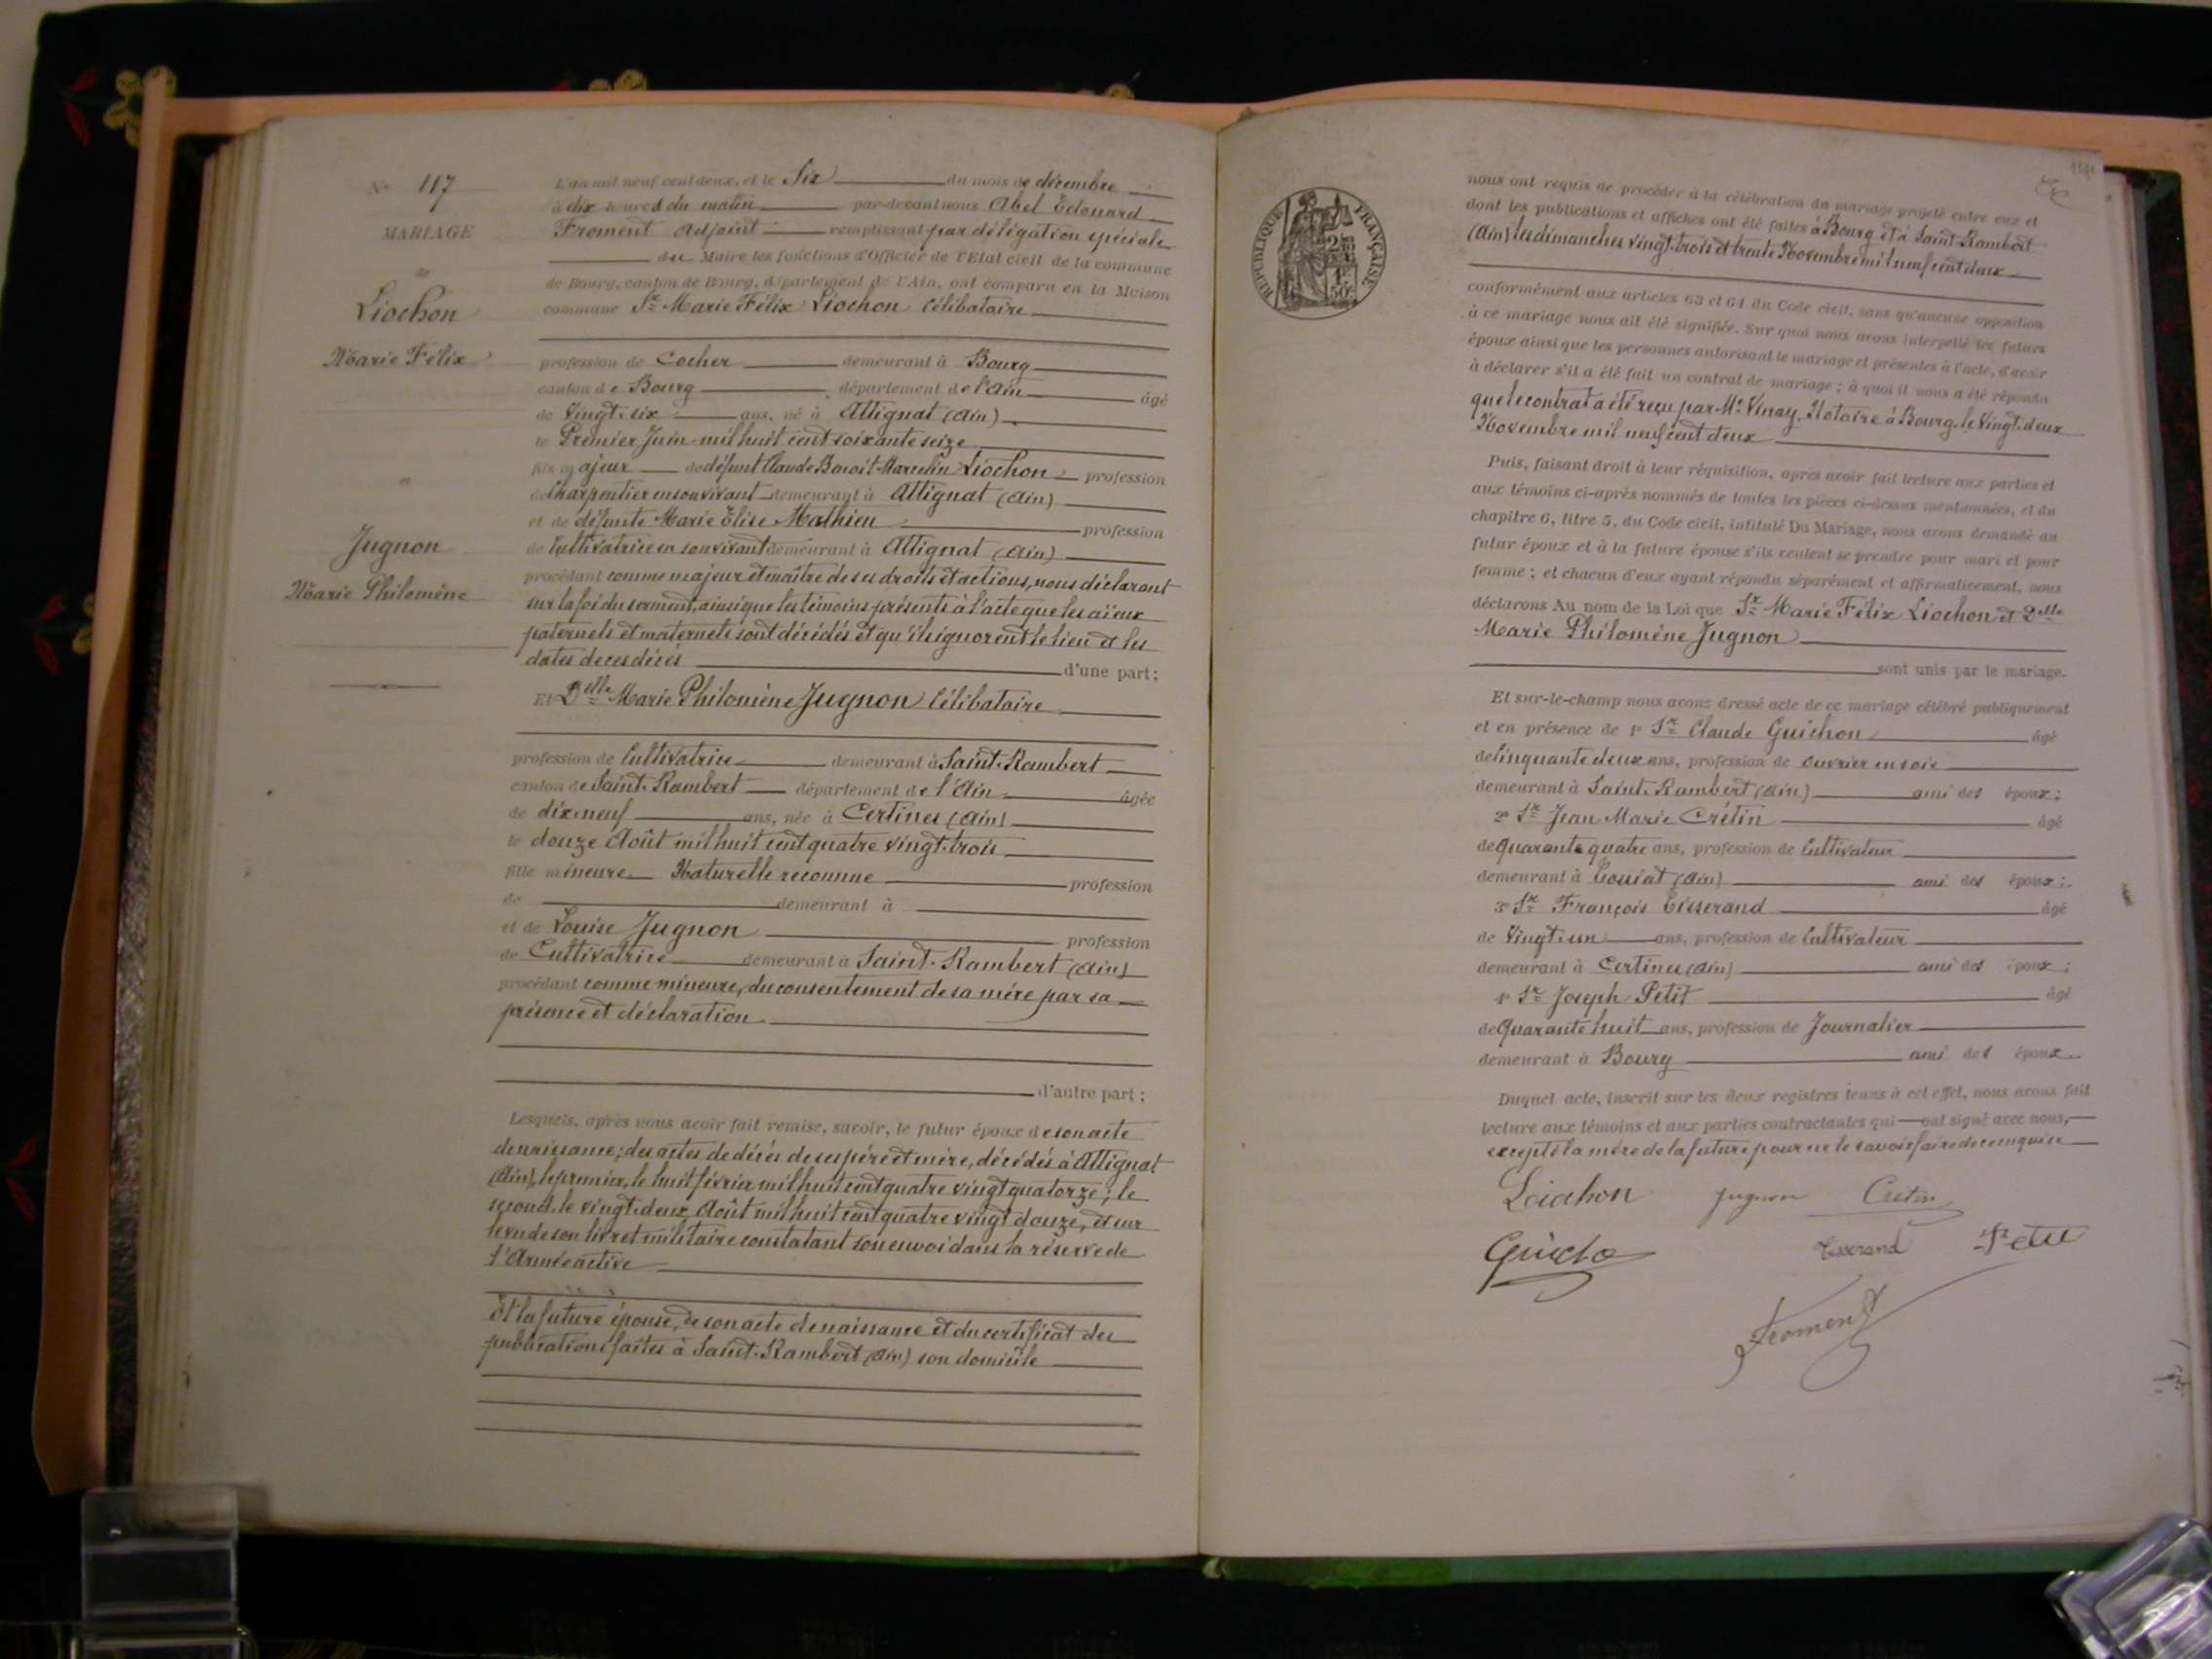 N° 117
MARIAGE
de
Liochon
Marie Félix
et
Jugnon
Marie Philomène
L'an mil neuf cent deux, et le Six du mois de décembre
à dix heures du matin par-devant nous Abel Edouard
Froment adjoint remplissant par délégation spéciale
du Maire les fonctions d'Officier de l'Etat civil de la commune
de Bourg, canton de Bourg, département de l'Ain, ont comparu en la Maison
commune Sr Marie Félix Liochon Célibataire
profession de Cocher demeurant à Bourg
canton de Bourg département de l'Ain âgé
de Vingt-six ans, né à Attignat (Ain)
le Premier Juin mil huit cent soixante seize
fils majeur de défunt Claude Benoit Marcelin Liochon profession
de Charpentier en son vivant demeurant à Attignat (Ain)
et de défunte Marie Elise Mathieu profession
de Cultivatrice en son vivant demeurant à Attignat (Ain)
procédant comme majeur et maître de ses droits et actions, nous déclarant
sur la foi du serment, ainsi que les témoins présents à l'acte que les aïeux
paternels et maternels sont décédés et qu'ils ignorent le lieu et les
dates de ces décès d'une part;
Et Delle Marie Philomène Jugnon Célibataire
profession de Cultivatrice demeurant à Saint-Rambert
canton de Saint-Rambert département de l'Ain âgée
de dix-neuf ans, née à Certines (Ain)
le douze Août mil huit cent quatre vingt-trois
fille mineure Naturelle reconnue profession
de demeurant à
et de Louise Jugnon profession
de Cultivatrice demeurant à Saint-Rambert (Ain)
procédant comme mineure, du consentement de sa mère par sa
présence et déclaration
d'autre part;
Lesquels, après nous avoir fait remise, savoir, le futur époux de son acte
de naissance; des actes de décès de ses père et mère, décédés à Attignat
(Ain), le premier, le huit février mil huit cent quatre vingt quatorze; le
second le vingt-deux Août mil huit cent quatre vingt douze, et sur
le vu de son livret militaire constatant son envoi dans la réserve de
l'Armée active
Et la future épouse, de son acte de naissance et du certificat des
publications faites à Saint-Rambert (Ain) son domicile
RÉPUBLIQUE FRANÇAISE
nous ont requis de procéder à la célébration du mariage projeté entre eux et
dont les publications et affiches ont été faites à Bourg et à Saint Rambert
(Ain) les dimanches vingt-trois et trente Novembre mil neuf cent deux
conformément aux articles 63 et 64 du Code civil, sans qu'aucune opposition
à ce mariage nous ait été signifiée. Sur quoi nous avons interpellé les futurs
époux ainsi que les personnes autorisant le mariage et présentes à l'acte, d'avoir
à déclarer s'il a été fait un contrat de mariage; à quoi il nous a été répondu
que le contrat a été reçu par Me Vinay, Notaire à Bourg, le Vingt-deux
Novembre mil neuf cent deux
Puis, faisant droit à leur réquisition, après avoir fait lecture aux parties et
aux témoins ci-après nommés de toutes les pièces ci-dessus mentionnées, et du
chapitre 6, titre 5, du Code civil, intitulé Du Mariage, nous avons demandé au
futur époux et à la future épouse s'ils veulent se prendre pour mari et pour
femme; et chacun d'eux ayant répondu séparément et affirmativement, nous
déclarons Au nom de la Loi que Sr Marie Félix Liochon et Delle
Marie Philomène Jugnon
sont unis par le mariage.
Et sur-le-champ nous avons dressé acte de ce mariage célébré publiquement
et en présence de 1° Sr Claude Guichon âgé
de Cinquante deux ans, profession de ouvrier en soie
demeurant à Saint-Rambert (Ain) ami des époux;
2° Sr Jean Marie Crétin âgé
de Quarante quatre ans, profession de Cultivateur
demeurant à (Ain) ami des époux;
3° Sr François Tisserand âgé
de Vingt-un ans, profession de Cultivateur
demeurant à Certines (Ain) ami des époux;
4° Sr Joseph Petit âgé
de Quarante huit ans, profession de Journalier
demeurant à Bourg ami des époux
Duquel acte, inscrit sur les deux registres tenus à cet effet, nous avons fait
lecture aux témoins et aux parties contractantes qui ont signé avec nous,
excepté la mère de la future pour ne le savoir faire de ce enquise
Liochon Jugnon Cretin
Guicho Tisserand Petit
Froment